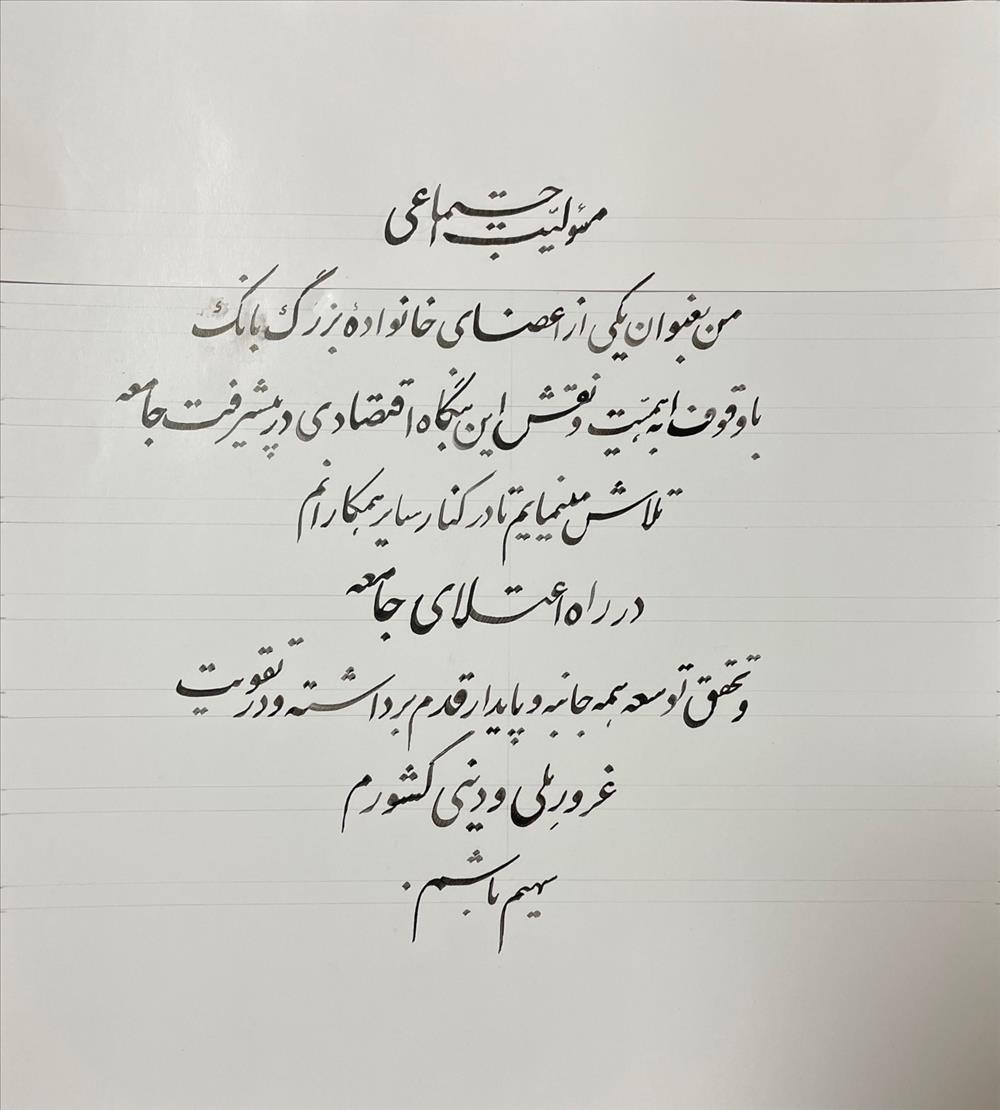 مسئولیّت اجتماعی
من بعنوان یکی از اعضای خانوادهٔ بزرگ بانک
با وقوف به اهمیّت و نقش این بنگاه اقتصادی در پیشرفت جامعه
تلاش مینمایم تا در کنار سایر همکارانم
در راه اعتلای جامعه
و تحقق توسعه همه جانبه و پایدار قدم برداشته و در تقویت
غرورِ ملی و دینی کشورم
سهیم باشم .